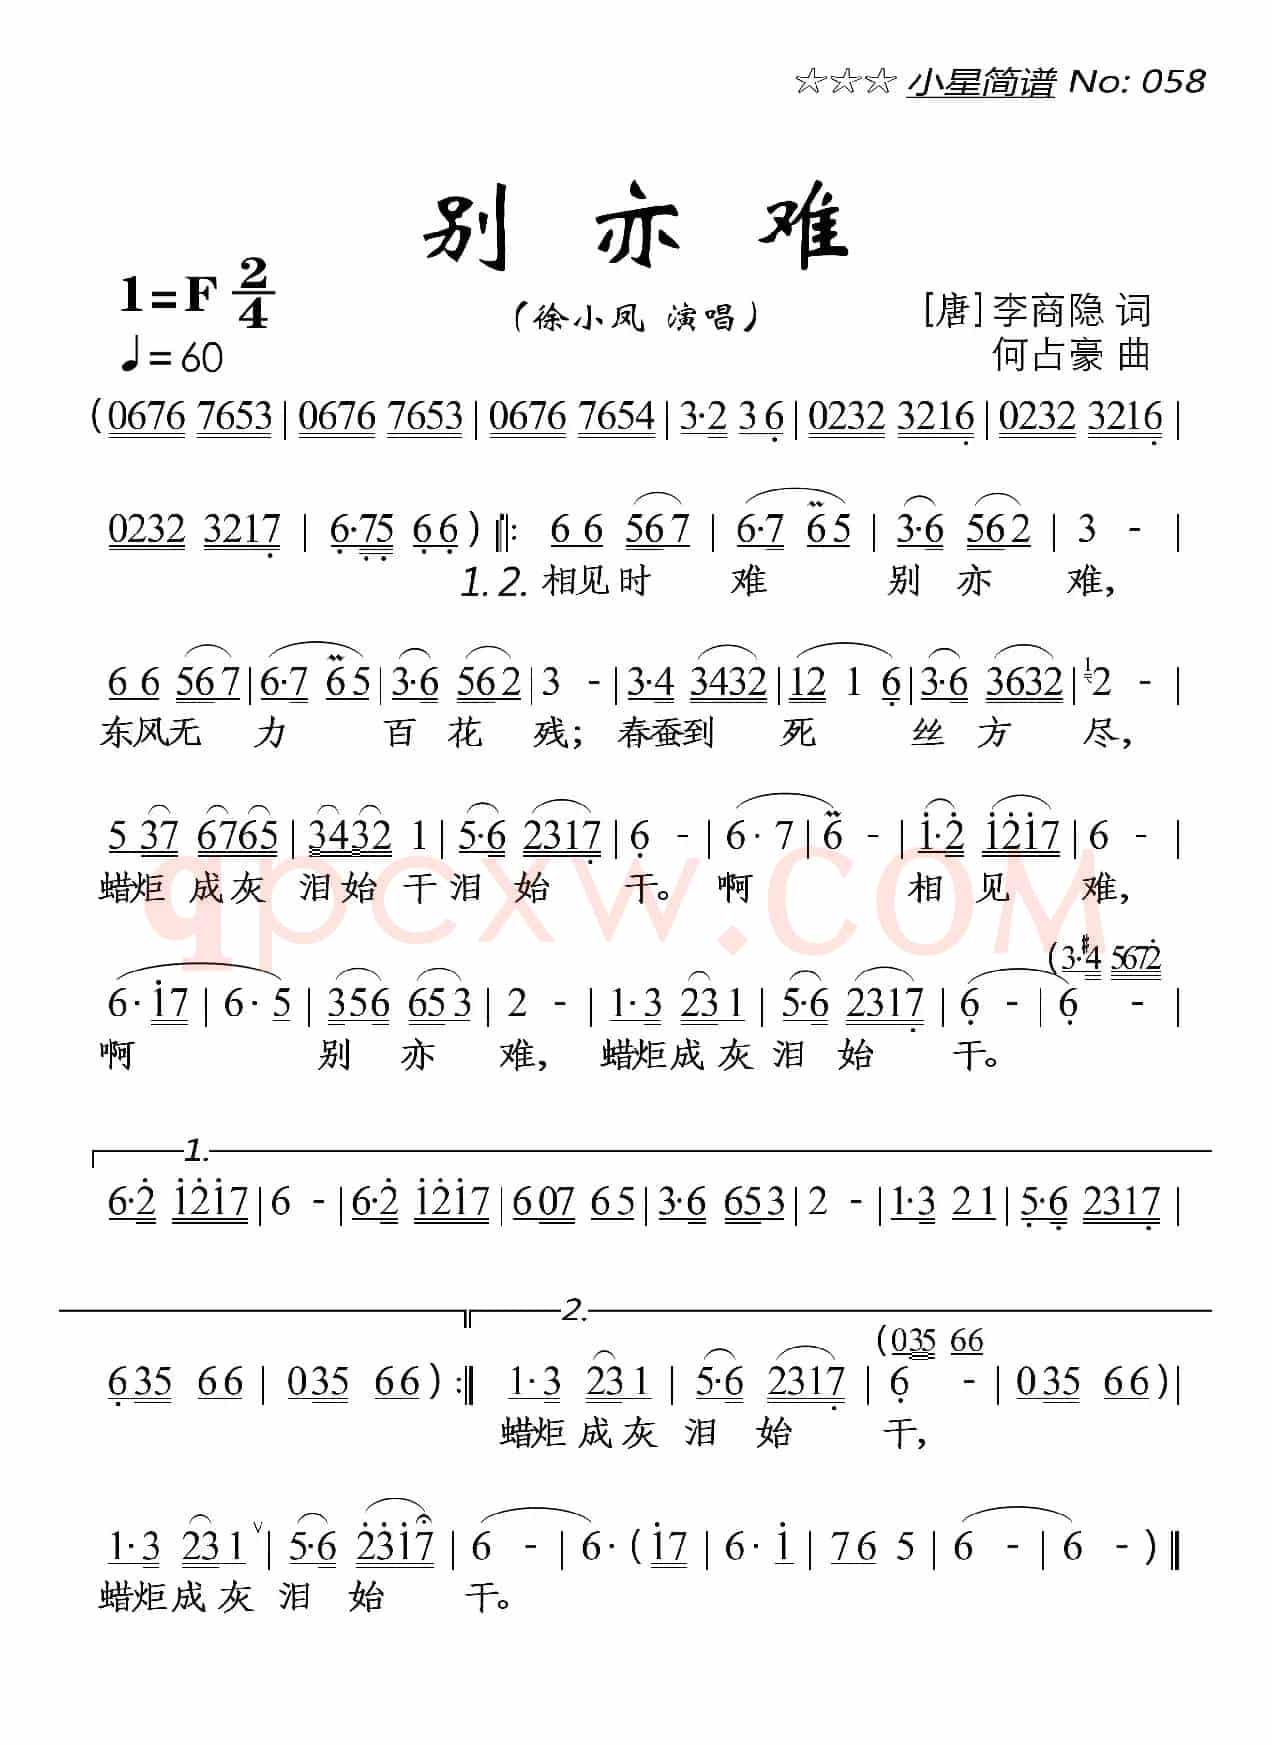 ☆☆☆ 小星简谱 No: 058
别亦难
1=F 2/4
（徐小凤 演唱）
[唐]李商隐 词
♩=60
何占豪 曲
(0676 7653 | 0676 7653 | 0676 7654 | 3·2 3 6 | 0232 3216 | 0232 3216 |
0232 3217 | 6·75 66 ) ‖: 6 6 567 | 6·7 65 | 3·6 562 | 3 - |
1. 2. 相见时 难 别 亦 难，
6 6 567 | 6·7 65 | 3·6 562 | 3 - | 3·4 3432 | 12 1 6 | 3·6 3632 | 1 2 - |
东风无 力 百 花 残；春蚕到 死 丝 方 尽，
5 37 6765 | 3432 1 | 5·6 2317 | 6 - | 6· 7 | 6 - | 1·2 1217 | 6 - |
蜡炬 成灰 泪始 干泪 始 干。 啊 相 见 难，
qpcxw.COM
(3·#4 5672
6· 17 | 6· 5 | 356 653 | 2 - | 1·3 231 | 5·6 2317 | 6 - | 6 - |
啊 别 亦 难，蜡炬成灰 泪 始 干。
1.
6·2 1217 | 6 - | 6·2 1217 | 607 65 | 3·6 653 | 2 - | 1·3 21 | 5·6 2317 |
2.
(035 66
635 66 | 035 66 ) :‖ 1·3 231 | 5·6 2317 | 6 - | 035 66 ) |
蜡炬 成灰 泪 始 干，
1·3 231 ∨ | 5·6 2317 | 6 - | 6· ( 17 | 6· 1 | 76 5 | 6 - | 6 - ) ‖
蜡炬成灰 泪 始 干。